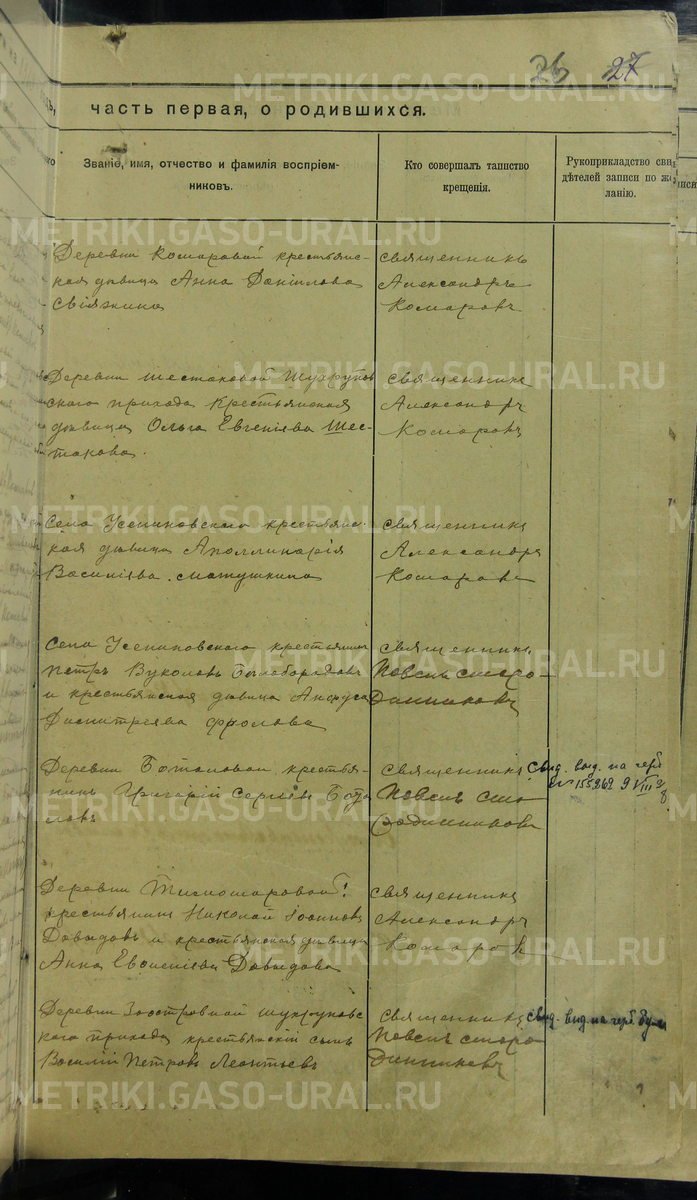 26 27
часть первая, о родившихся.
Званіе, имя, отчество и фамилія воспріем-
никовъ.
Кто совершалъ таинство
крещенія.
Рукоприкладство сви
дѣтелей записи по же
ланію.
Деревни Комаровой крестьянс-
кая дѣвица Анна Даніилова
Свіяжина
Священникъ
Александръ
Комаровъ
Деревни Шестаковой Шухрупов
скаго прихода Крестьянская
дѣвица Ольга Евгеніева Шес-
такова.
Священникъ
Александръ
Комаровъ
Села крестьянс-
кая дѣвица Аполлинарія
Василіева Матушкина
Священникъ
Александръ
Комаровъ
Села крестьянинъ
Петръ Вуколовъ Белобородовъ
и крестьянская дѣвица
Димитріева Фролова
Священникъ
Деревни Боталовой крестья-
нинъ Григорій Сергіевъ Бота
ловъ
Священникъ
Свид. выд. на герб
№ 155262 9 VIII
Деревни
крестьянинъ Николай Іоанновъ
Давыдовъ и крестьянская дѣвица
Анна Евсеніева Давыдова
Священникъ
Александръ
Комаровъ
Деревни Заостровной Шухруповс-
каго прихода крестьянскій сынъ
Василій Петровъ Леонтьевъ
Священникъ
Свид. выд. на герб. бум
METRIKI.GASO-URAL.RU